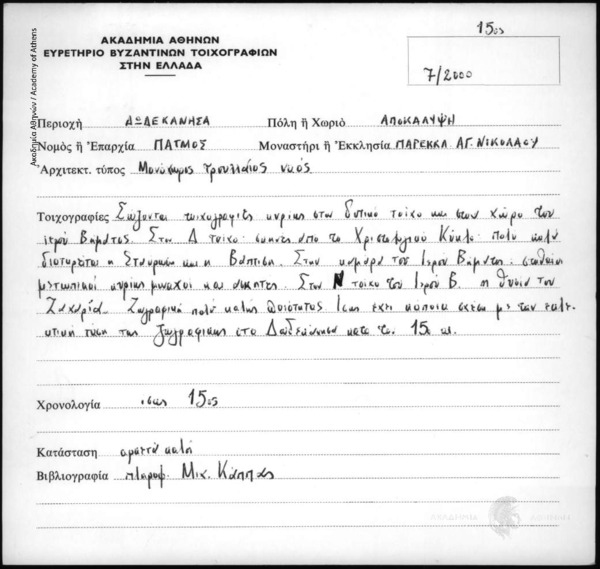 15ος
ΑΚΑΔΗΜΙΑ ΑΘΗΝΩΝ
ΕΥΡΕΤΗΡΙΟ ΒΥΖΑΝΤΙΝΩΝ ΤΟΙΧΟΓΡΑΦΙΩΝ
ΣΤΗΝ ΕΛΛΑΔΑ
7/2000
Ακαδημία Αθηνών / Academy of Athens
Περιοχὴ ΔΩΔΕΚΑΝΗΣΑ Πόλη ἢ Χωριὸ ΑΠΟΚΑΛΥΨΗ
Νομὸς ἢ Ἐπαρχία ΠΑΤΜΟΣ Μοναστήρι ἢ Ἐκκλησία ΠΑΡΕΚΚΛ ΑΓ. ΝΙΚΟΛΑΟΥ
Ἀρχιτεκτ. τύπος Μονόχωρος τρουλλαίος ναός
Τοιχογραφίες Σώζονται τοιχογραφίες κυρίως στον δυτικό τοίχο και στον χώρο του
ιερού Βήματος. Στον Δ τοίχο σκηνές από το Χριστολογικό Κύκλο πολύ καλά
διατηρείται η Σταύρωση και η Βάπτιση. Στην καμάρα του Ιερού Βήματος
μετωπικοί κυρίως μοναχοί και ασκητές. Στον Ν τοίχο του Ιερού Β. η θυσία του
Ζαχαρία. Ζωγραφική πολύ καλής ποιότητας ίσως έχει κάποια σχέση με την
τάση της ζωγραφικής στα Δωδεκάνησα κατά το 15ο αι.
Χρονολογία ισως 15ος
Κατάσταση αρκετά καλή
Βιβλιογραφία Μιχ. Κάππας
ΑΚΑΔΗΜΙΑ ΑΘΗΝΩΝ